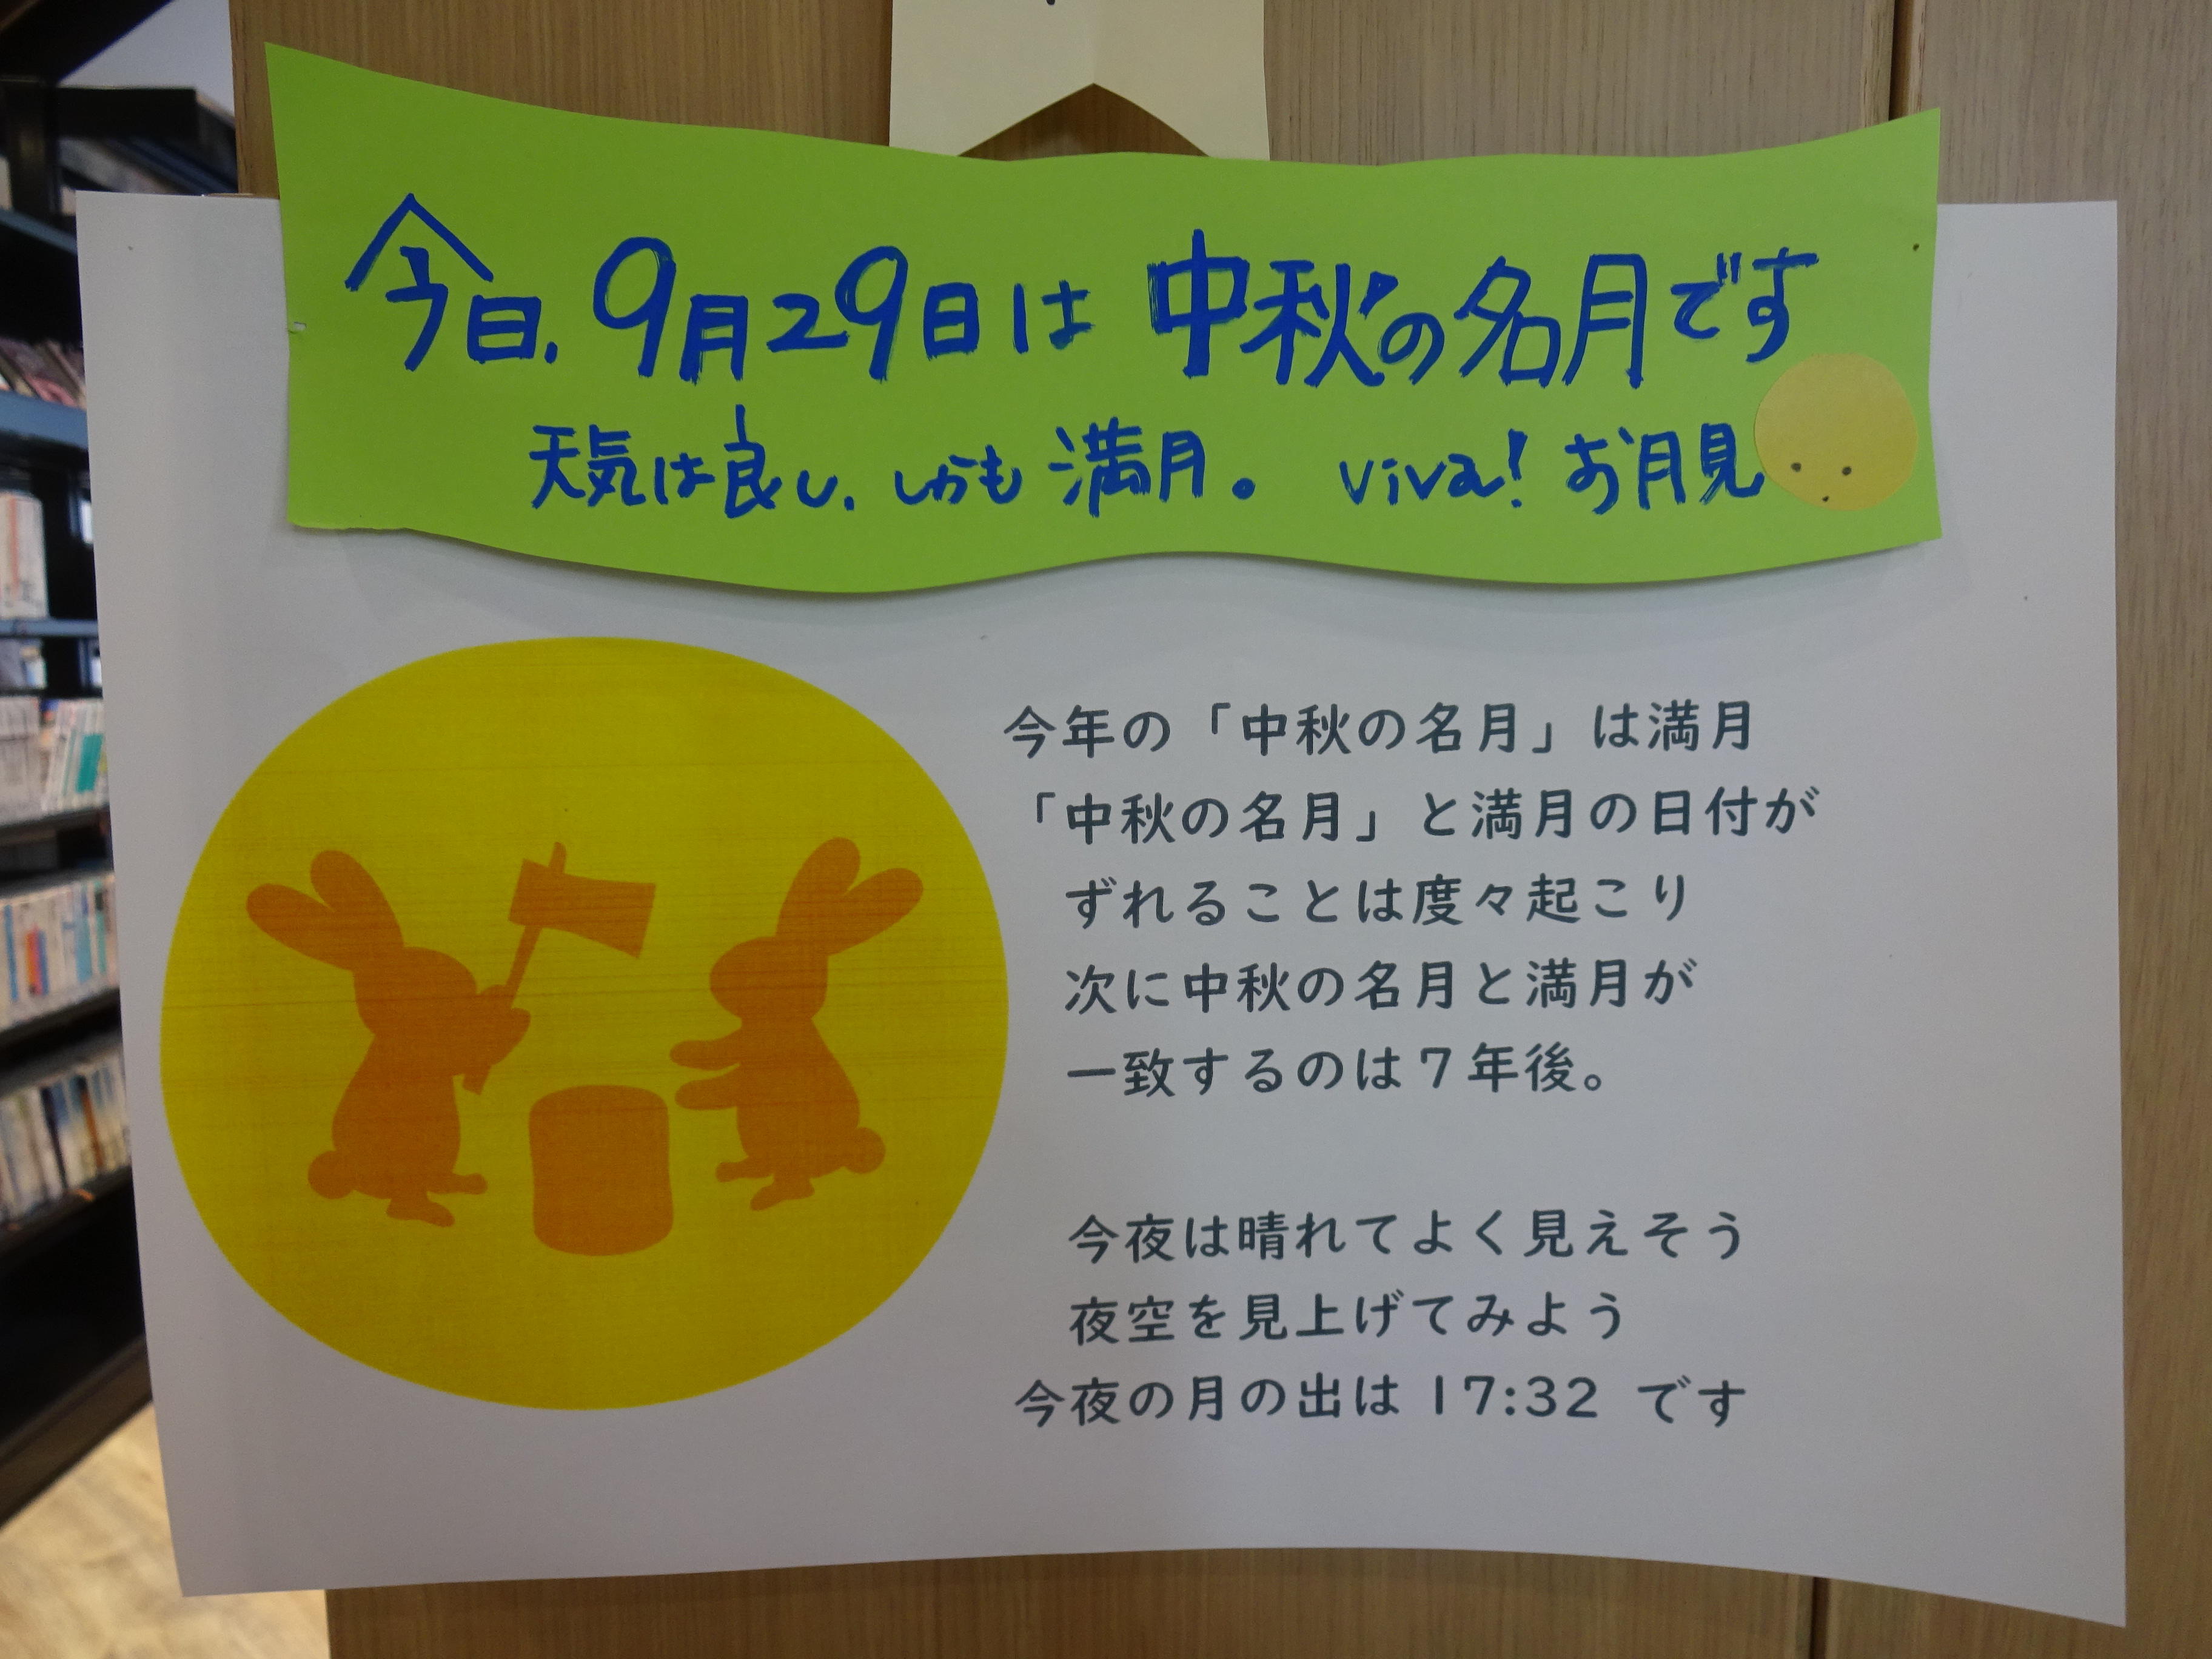 今日、9月29日は 中秋の名月です
天気は良し、しかも満月。 viva! お月見
今年の「中秋の名月」は満月
「中秋の名月」と満月の日付が
ずれることは度々起こり
次に中秋の名月と満月が
一致するのは7年後。
今夜は晴れてよく見えそう
夜空を見上げてみよう
今夜の月の出は 17:32 です